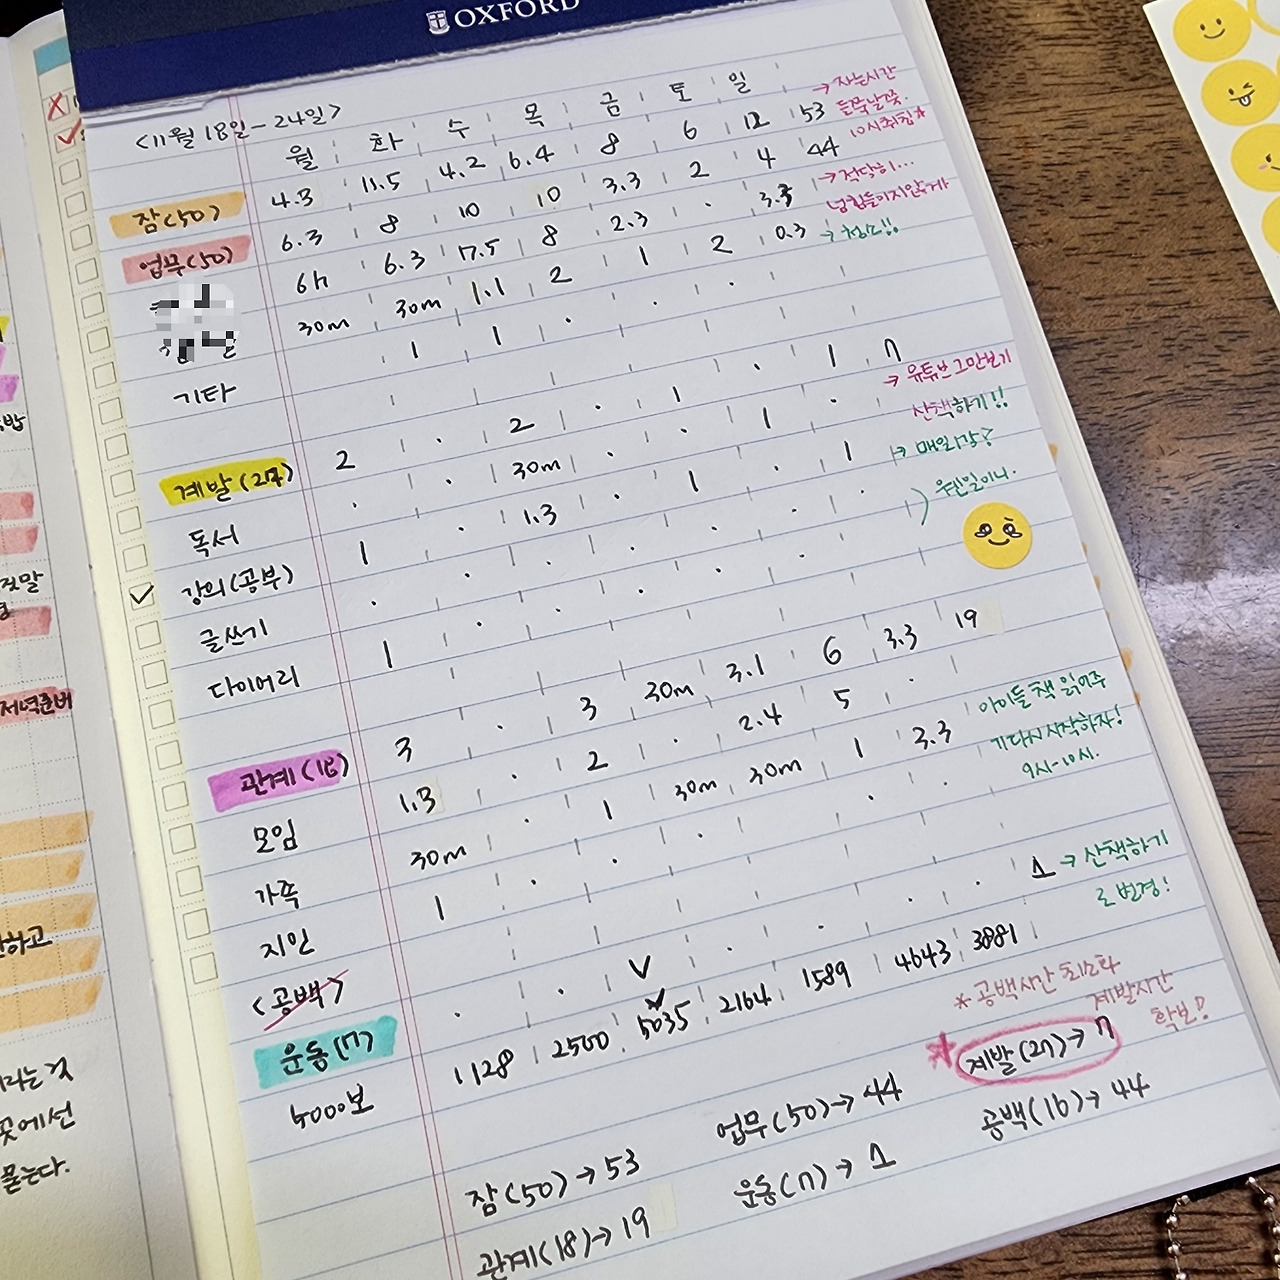 OXFORD
<11월 18일 - 24일>
월 화 수 목 금 토 일
잠(50) 4.3 11.5 4.2 6.4 8 6 12 53 → 자는시간
들쭉날쭉.
10시취침★
업무(50) 6.3 8 10 10 3.3 2 4 44 → 적당히...
넘힘들이지않게
6h 6.3 7.5 8 2.3 · 3.3
30m 30m 1.1 2 1 2 0.3 → 청소!!
기타 1 1 · · · ·
계발(27) 2 · 2 · 1 · 1 7 → 유튜브그만보기
산책하기!!
독서 · · 30m · · 1 ·
강의(공부) 1 · 1.3 · 1 · 1 → 매일1강?
글쓰기 · · · · · · · 웬일이니.
다이어리 1 · · · · · ·
관계(18) 3 · 3 30m 3.1 6 3.3 19
모임 1.3 · 2 · 2.4 5 ·
가족 30m · 1 30m 30m 1 3.3
아이들 책 읽어주
기다시시작하자!
9시-10시.
지인 1 · · · · · ·
<공백>
운동(7) · · V · · · · 1 → 산책하기
로 변경!
5000보 1128 2500 5035 2164 1589 4643 3881
* 공백시간 최소화
계발시간
확보!
잠(50)→53 업무(50)→44 계발(27)→7
관계(18)→19 운동(7)→1 공백(16)→44
저녁준비
하고
라는 것
곳에선
묻는다.